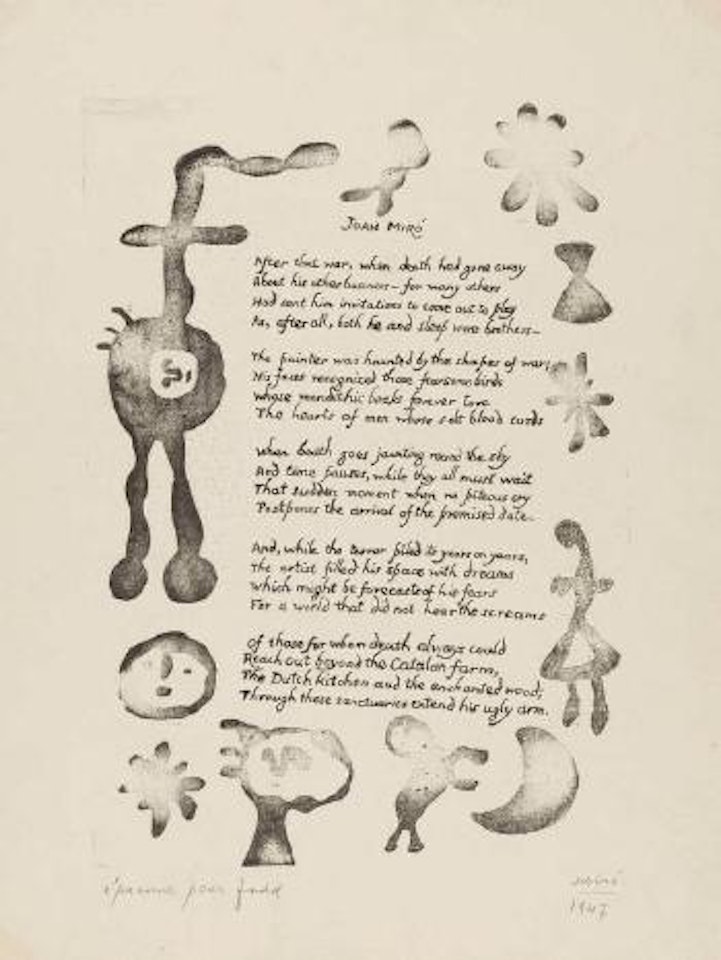 JOAN MIRÓ
After that war, when death had gone away
About his other business — for many others
Had sent him invitations to come out to play
As, after all, both he and sleep were brothers —
The painter was haunted by the shapes of war;
His faces recognized those fearsome birds
Whose beaks forever tore
The hearts of men whose salt blood curds
When death goes jaunting round the sky
And time pauses, while they all must wait
That sudden moment when no piteous cry
Postpones the arrival of the promised date.
And, while the terror piled its years on years,
The artist filled his space with dreams
Which might be forecasts of his fears
For a world that did not hear the screams
of those for whom death always could
Reach out beyond the Catalan farm,
The Dutch kitchen and the enchanted wood;
Through these sanctuaries extend his ugly arm.
épreuve pour
Miró
1947